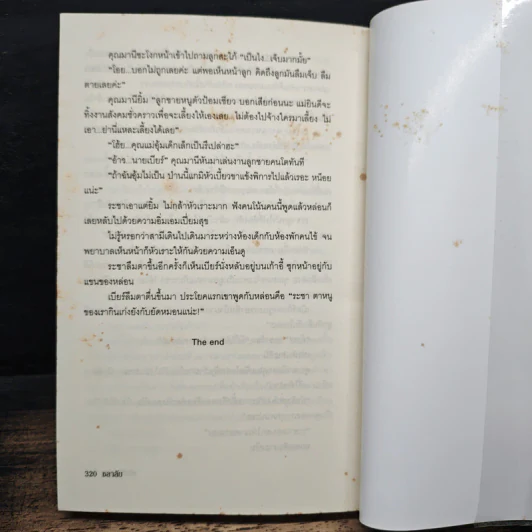 คุณมานีชะโงกหน้าเข้าไปถามลูกสะใภ้ "เป็นไง...เจ็บมากมั้ย"
"โอย...บอกไม่ถูกเลยค่ะ แต่พอเห็นหน้าลูก คิดถึงลูกมันลืมเจ็บ ลืม
ตายเลยค่ะ"
คุณมานียิ้ม "ลูกชายหนูตัวป้อมเชียว บอกเสียก่อนนะ แม่ยินดีจะ
ทิ้งงานสังคมชั่วคราวเพื่อจะเลี้ยงให้เองเลย ไม่ต้องไปจ้างใครมาเลี้ยง ไม่
เอา...ย่านี่แหละเลี้ยงได้เลย"
"โฮ้ย...คุณแม่อุ้มเด็กเล็กเป็นรึเปล่าฮะ"
"อ้าว...นายเบียร์" คุณมานีหันมาเล่นงานลูกชายคนโตทันที
"ถ้าฉันอุ้มไม่เป็น ป่านนี้แกมิหัวเบี้ยวขาแข้งพิการไปแล้วเรอะ หน่อย
แน่ะ"
ระชาเอาแต่ยิ้ม ไม่กล้าหัวเราะมาก ฟังคนโน้นคนนี้พูดแล้วหล่อนก็
เลยหลับไปด้วยความอิ่มเอมเปี่ยมสุข
ไม่รู้หรอกว่าสามีเดินไปเดินมาระหว่างห้องเด็กกับห้องพักคนไข้ จน
พยาบาลเห็นหน้าก็หัวเราะให้กันด้วยความเอ็นดู
ระชาลืมตาขึ้นอีกครั้งก็เห็นเบียร์นั่งหลับอยู่บนเก้าอี้ ซุกหน้าอยู่กับ
แขนของหล่อน
เบียร์ลืมตาตื่นขึ้นมา ประโยคแรกเขาพูดกับหล่อนคือ "ระชา ตาหนู
ของเรากินเก่งยังกับยัดหมอนแน่ะ!"
The end
320 ชลาลัย